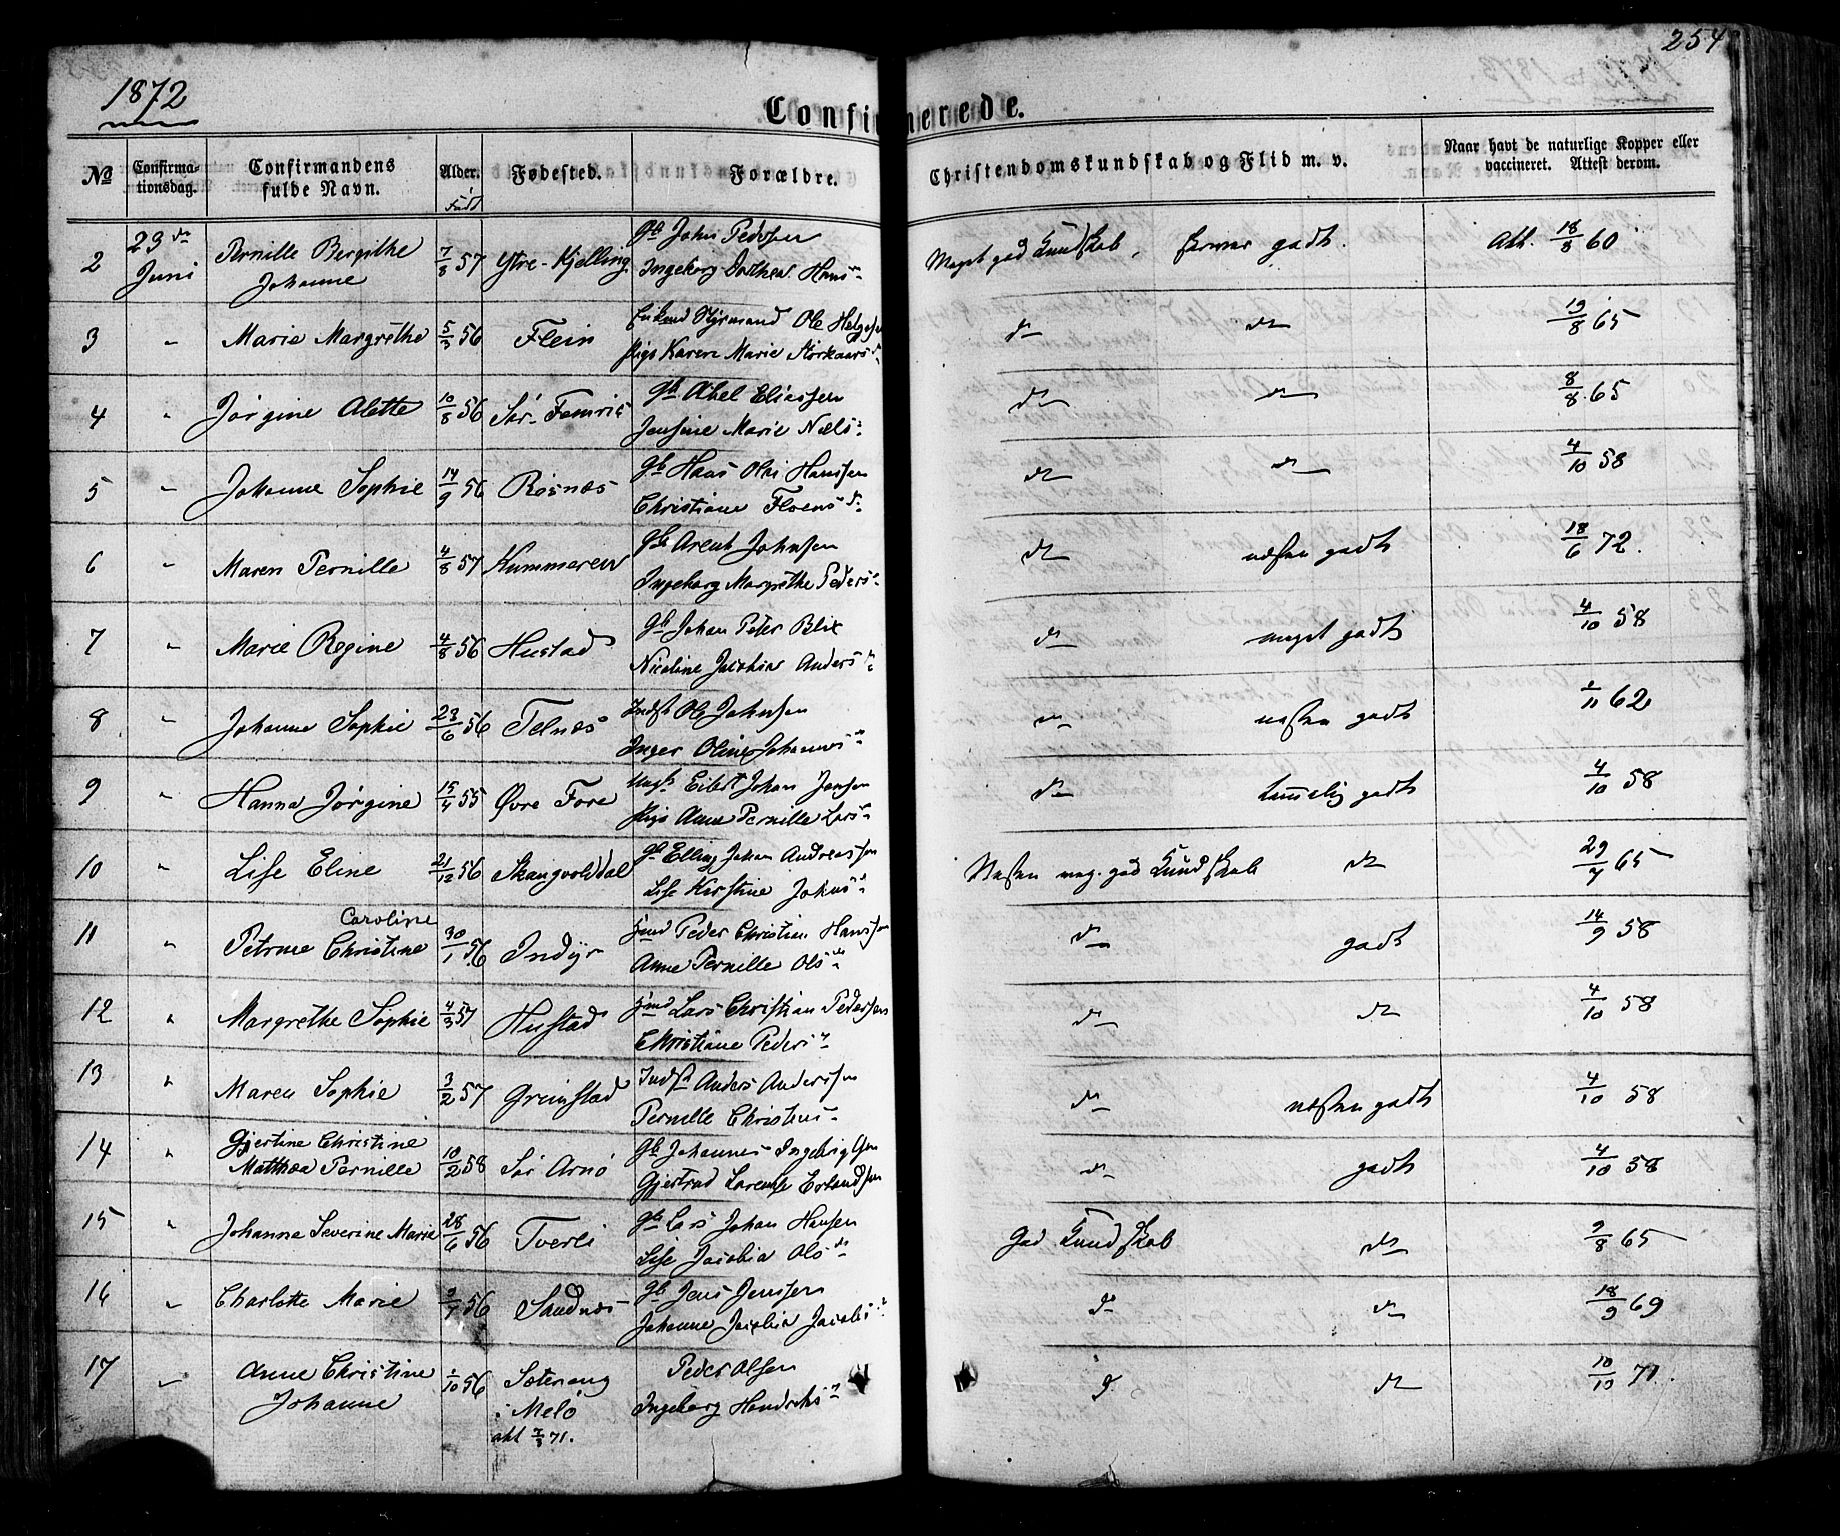 254
1872
Confirmerede.
No
Confirma-
tionsdag.
Confirmandens
fulde Navn.
Alder.
Född
Fødested.
Forældre.
Christendomskundskab og Flid m. v.
Naar havt de naturlige Kopper eller
vaccineret. Attest derom.
2 23de Juni Pernille Bergithe Johanne 7/8 57 Ytre-Kjelling Gb John Pedersen
Ingeborg Dorthea Hans
Meget god Kundskab, godt. Att. 18/8 60
3 " Marie Margrethe 5/3 56 Flein Enkemd Styrmand Ole Helgesen
Pige Karen Marie
do do 19/8 65
4 " Jørgine Alette 10/8 56 Sør-Fomvik Gb Abel Eliassen
Jensine Marie Niels
do do 8/8 65
5 " Johanne Sophie 14/9 56 Rosnæs Gb Hans Olai Hanssen
Christiane Floens d:
do do 4/10 58
6 " Maren Pernille 4/8 57 Kummeren Gb Arent Johnsen
Ingeborg Margrethe Peders
do næsten godt 18/6 72.
7 " Marie Regine 4/8 56 Hustad Gb Johan Peter Blix
Nicoline Jacobia Anders
do meget godt 4/10 58
8 " Johanne Sophie 23/6 56 Telnæs Indst Ole Johnsen
Inger Oline Johannes
do næsten godt 1/11 62
9 " Hanna Jørgine 15/4 55 Øvre Fore Ungk Eilert Johan Jensen
Pige Anne Pernille Lars
do temmelig godt 4/10 58
10 " Lise Eline 21/12 56 Skaugvolddal Gb Elling Johan Andreassen
Lise Kirstine Johns
Næsten meg. god Kundskab do 29/7 65
11 " Petrine Caroline Christine 30/1 56 Indyr Hmd Peder Christian Hanssen
Anne Pernille Ols d:
do godt 14/9 58
12 " Margrethe Sophie 4/3 57 Hustad Hmd Lars Christian Pedersen
Christiane Peders
do do 4/10 58
13 " Maren Sophie 3/2 57 Grimstad Indst Anders Anderssen
Pernille Christens
do næsten godt 4/10 58
14 " Gjertine Christine
Matthea Pernille 10/2 58 Sør Arnø Gb Johannes Ingebrigtsen
Gjertrud Lorentse Erlandsen
do godt 4/10 58
15 " Johanna Severine Marie 28/6 56 Tverli Gb Lars Johan Hansen
Lise Jacobia Ols de
God Kundskab do 9/8 65
16 " Charlotte Marie 9/7 56 Sandnæs Gb Jens Jenssen
Johanne Jacobia Jacobs
do do 18/9 69
17 " Anne Christine
Johanne 1/10 56 Sætervog
i Melø
akt 7/3 71.
Peder Olsen
Ingeborg Hendriks
d. do 10/10 71.